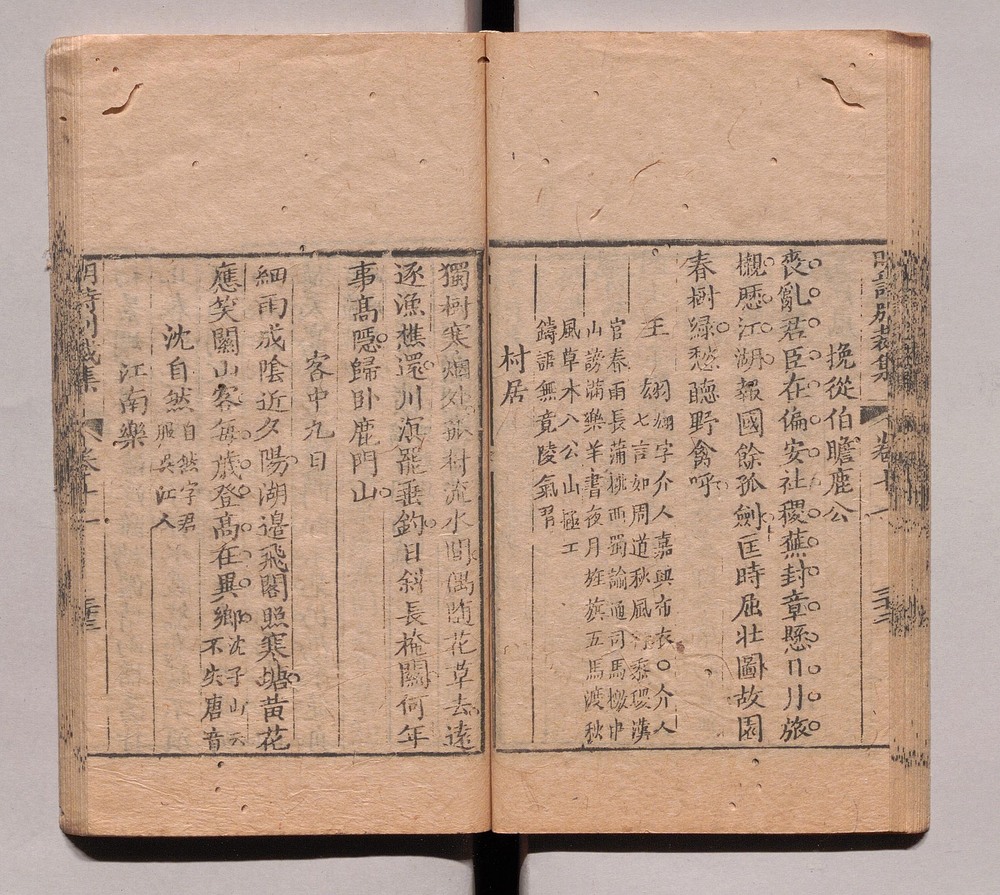 挽從伯瞻鹿公
喪亂君臣在偏安社稷蕪封章懸日月旅
櫬歷江湖報國餘孤劍匡時屈壯圖故園
春樹綠愁聽野禽呼
王翃
翃字介人嘉興布衣○介人
七言如周道秋風 黍稷漢
官春雨長蒲桃西蜀諭通司馬檄中
山謗滿樂羊書夜月旌旗五馬渡秋
風草木八公山極工
鑄語無竟陵氣習
村居
獨樹寒烟外孤村流水間偶隨花草去遠
逐漁樵還川沉罷垂釣日斜長掩關何年
事高隱歸卧鹿門山
客中九日
細雨成陰近夕陽湖邉飛閣照寒塘黄花
應笑關山客每歲登高在異鄉
沈子山云
不失唐音
沈自然
自然字君
服吳江人
江南樂
明詩別裁集
卷十一
三十三